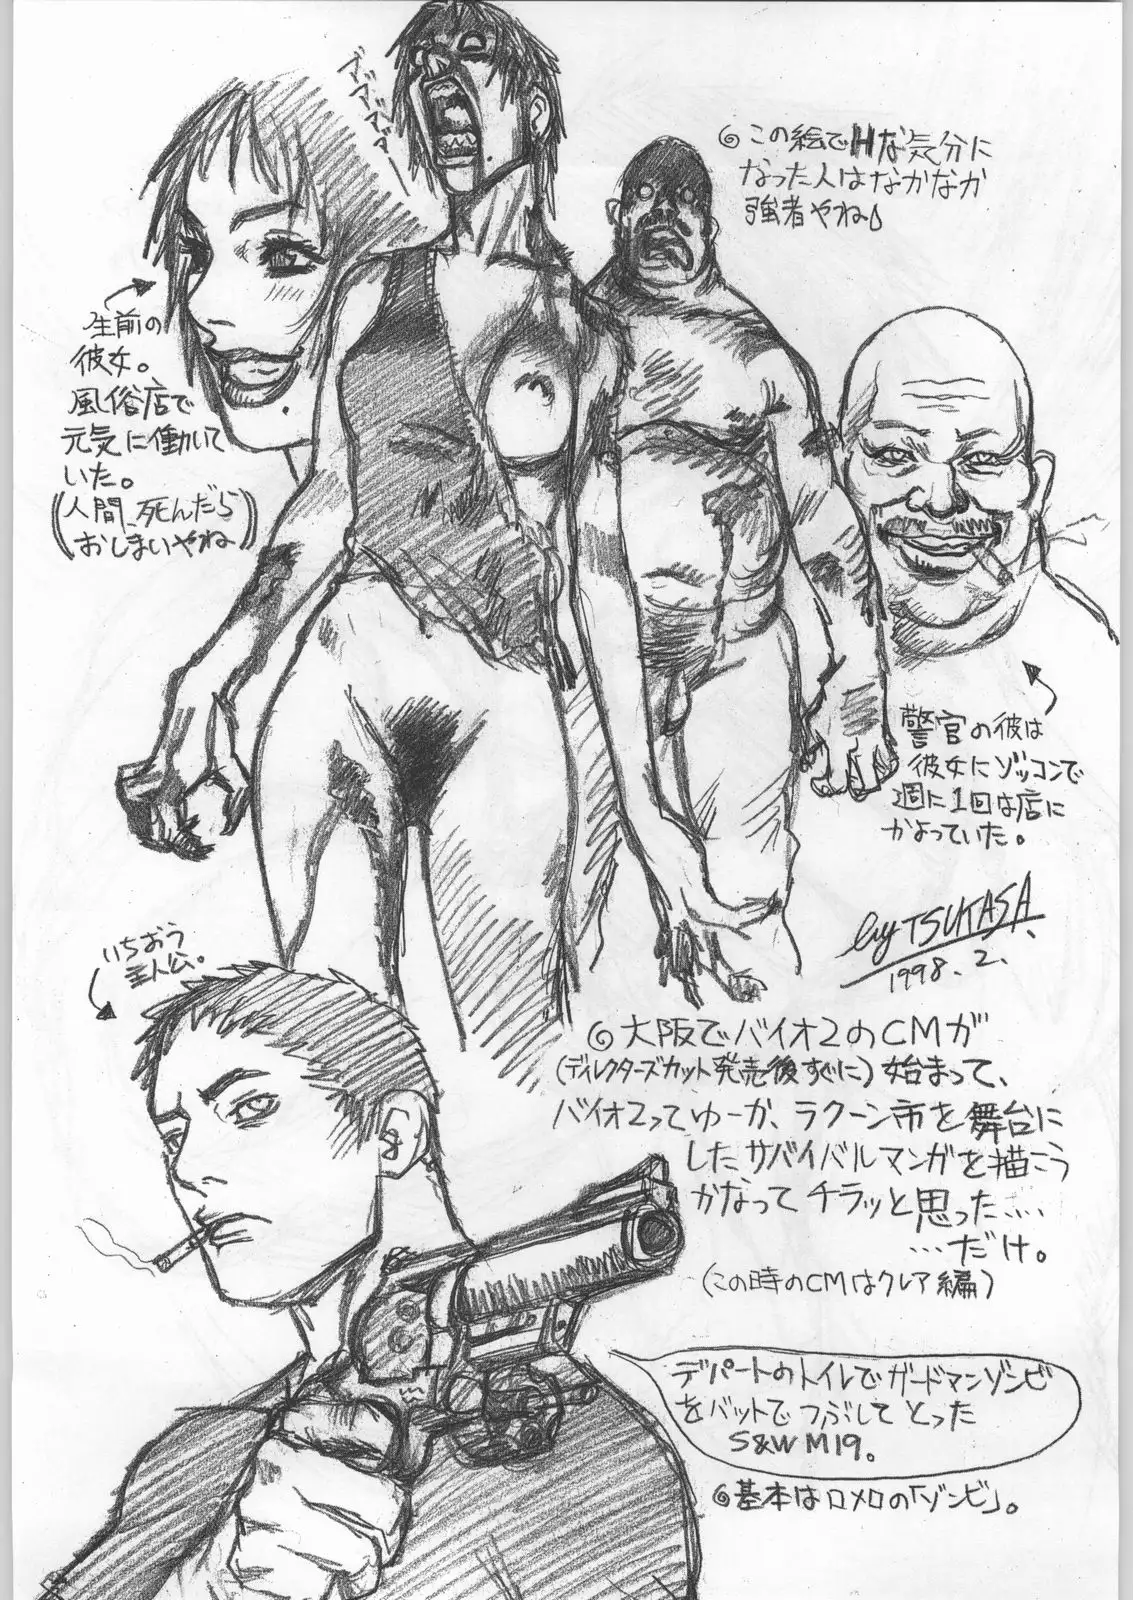 ア゛ア゛ア゛ア゛
この絵でHな気分に
なった人はなかなか
強者やね♪
生前の
彼女。
風俗店で
元気に働いて
いた。
(人間、死んだら
おしまいやね)
警官の彼は
彼女にゾッコンで
週に1回は店に
かよっていた。
by TSUKASA.
1998.2.
いちおう
主人公。
大阪でバイオ2のCMが
(ディレクターズカット発売後すぐに)始まって、
バイオ2ってゆーか、ラクーン市を舞台に
したサバイバルマンガを描こう
かなってチラッと思った……
…だけ。
(この時のCMはクレア編)
デパートのトイレでガードマンゾンビ
をバットでつぶしてとった
S&W M19.
基本はロメロの「ゾンビ」。